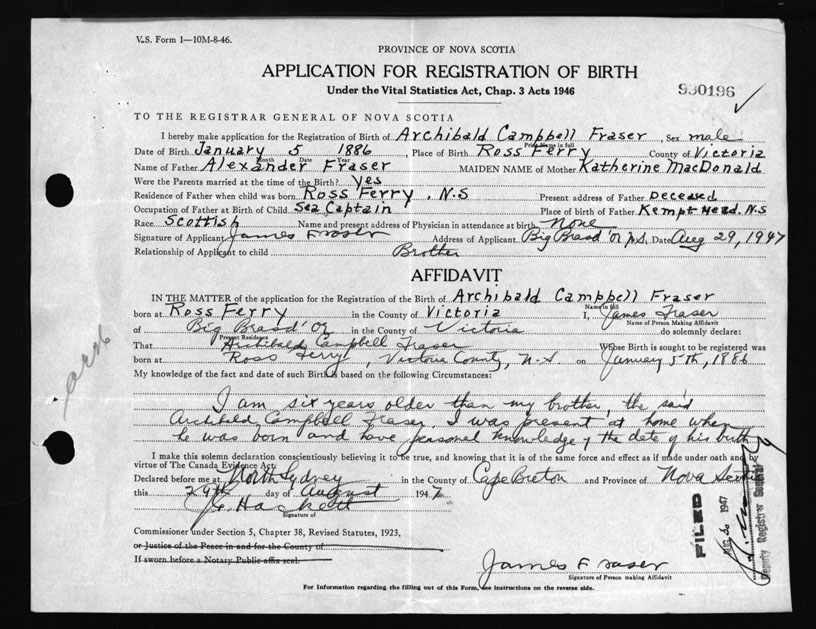 V.S. Form 1—10M-8-46.
PROVINCE OF NOVA SCOTIA
APPLICATION FOR REGISTRATION OF BIRTH
Under the Vital Statistics Act, Chap. 3 Acts 1946
930196
TO THE REGISTRAR GENERAL OF NOVA SCOTIA
I hereby make application for the Registration of Birth of Archibald Campbell Fraser, Sex male
Print Name in full
Date of Birth January 5 1886, Place of Birth Ross Ferry County of Victoria
Month Date Year
Name of Father Alexander Fraser MAIDEN NAME of Mother Katherine MacDonald
Were the Parents married at the time of the Birth? Yes
Residence of Father when child was born Ross Ferry, N.S Present address of Father Deceased
Occupation of Father at Birth of Child Sea Captain Place of birth of Father Kempt Head. N.S
Race Scottish Name and present address of Physician in attendance at birth None
Signature of Applicant James Fraser Address of Applicant Big Brasd'Or N.S. Date Aug 29, 1947
Relationship of Applicant to child Brother
AFFIDAVIT
IN THE MATTER of the application for the Registration of the Birth of Archibald Campbell Fraser
born at Ross Ferry in the County of Victoria I, James Fraser
Name in full
Name of Person Making Affidavit
of Big Brasd'Or in the County of Victoria do solemnly declare:
Present Residence
That Archibald Campbell Fraser Whose Birth is sought to be registered was
born at Ross Ferry, Victoria County, N.S on January 5th, 1886
My knowledge of the fact and date of such Birth is based on the following Circumstances:
I am six years older than my brother, the said
Archibald Campbell Fraser. I was present at home when
he was born and have personal knowledge of the date of his birth
I make this solemn declaration conscientiously believing it to be true, and knowing that it is of the same force and effect as if made under oath and by
virtue of The Canada Evidence Act.
Declared before me at North Sydney in the County of Cape Breton and Province of Nova Scotia
this 29th day of August 1947
J. Haskett
Signature of
Commissioner under Section 5, Chapter 38, Revised Statutes, 1923,
or Justice of the Peace in and for the County of
If sworn before a Notary Public affix seal.
James Fraser
Signature of Person making Affidavit
For Information regarding the filling out of this Form, see instructions on the reverse side.
FILED
1947
Deputy Registrar General